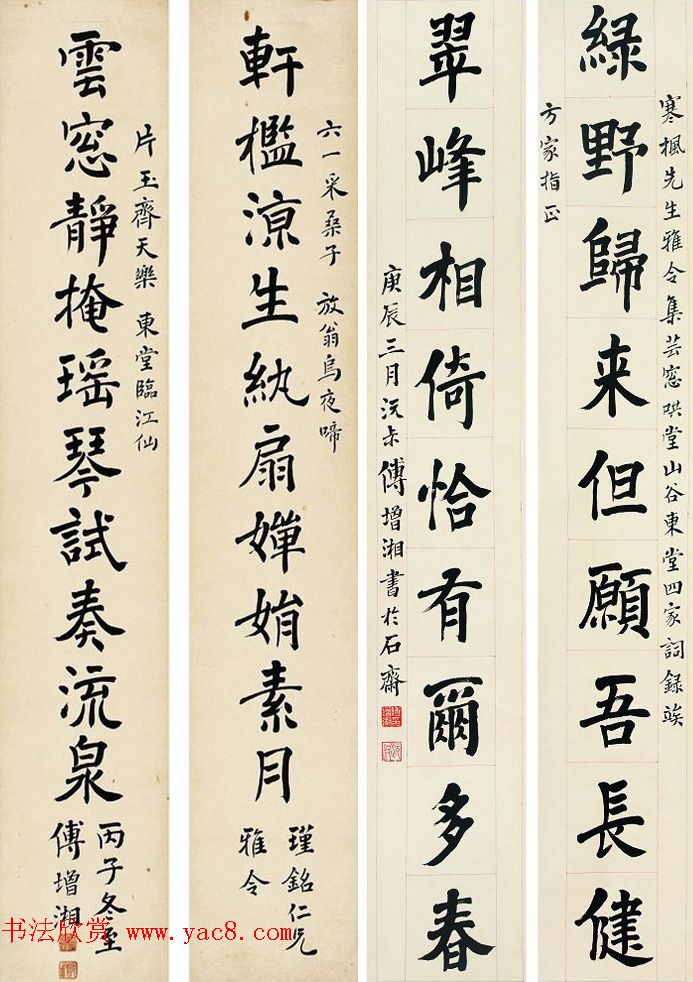 寒楓先生雅令集芸窓珙堂山谷東堂四家詞録竢
綠野歸来但願吾長健
方家指正
翠峰相倚恰有爾多春
庚辰三月沅尗傅增湘書於石齋
六一采桑子 放翁烏夜啼
軒檻涼生紈扇嬋娟素月
瑾銘仁兄
雅令
片玉齊天樂 東堂臨江仙
雲窓靜掩瑶琴試奏流泉
丙子冬至
傅增湘
书法欣赏 www.yac8.com